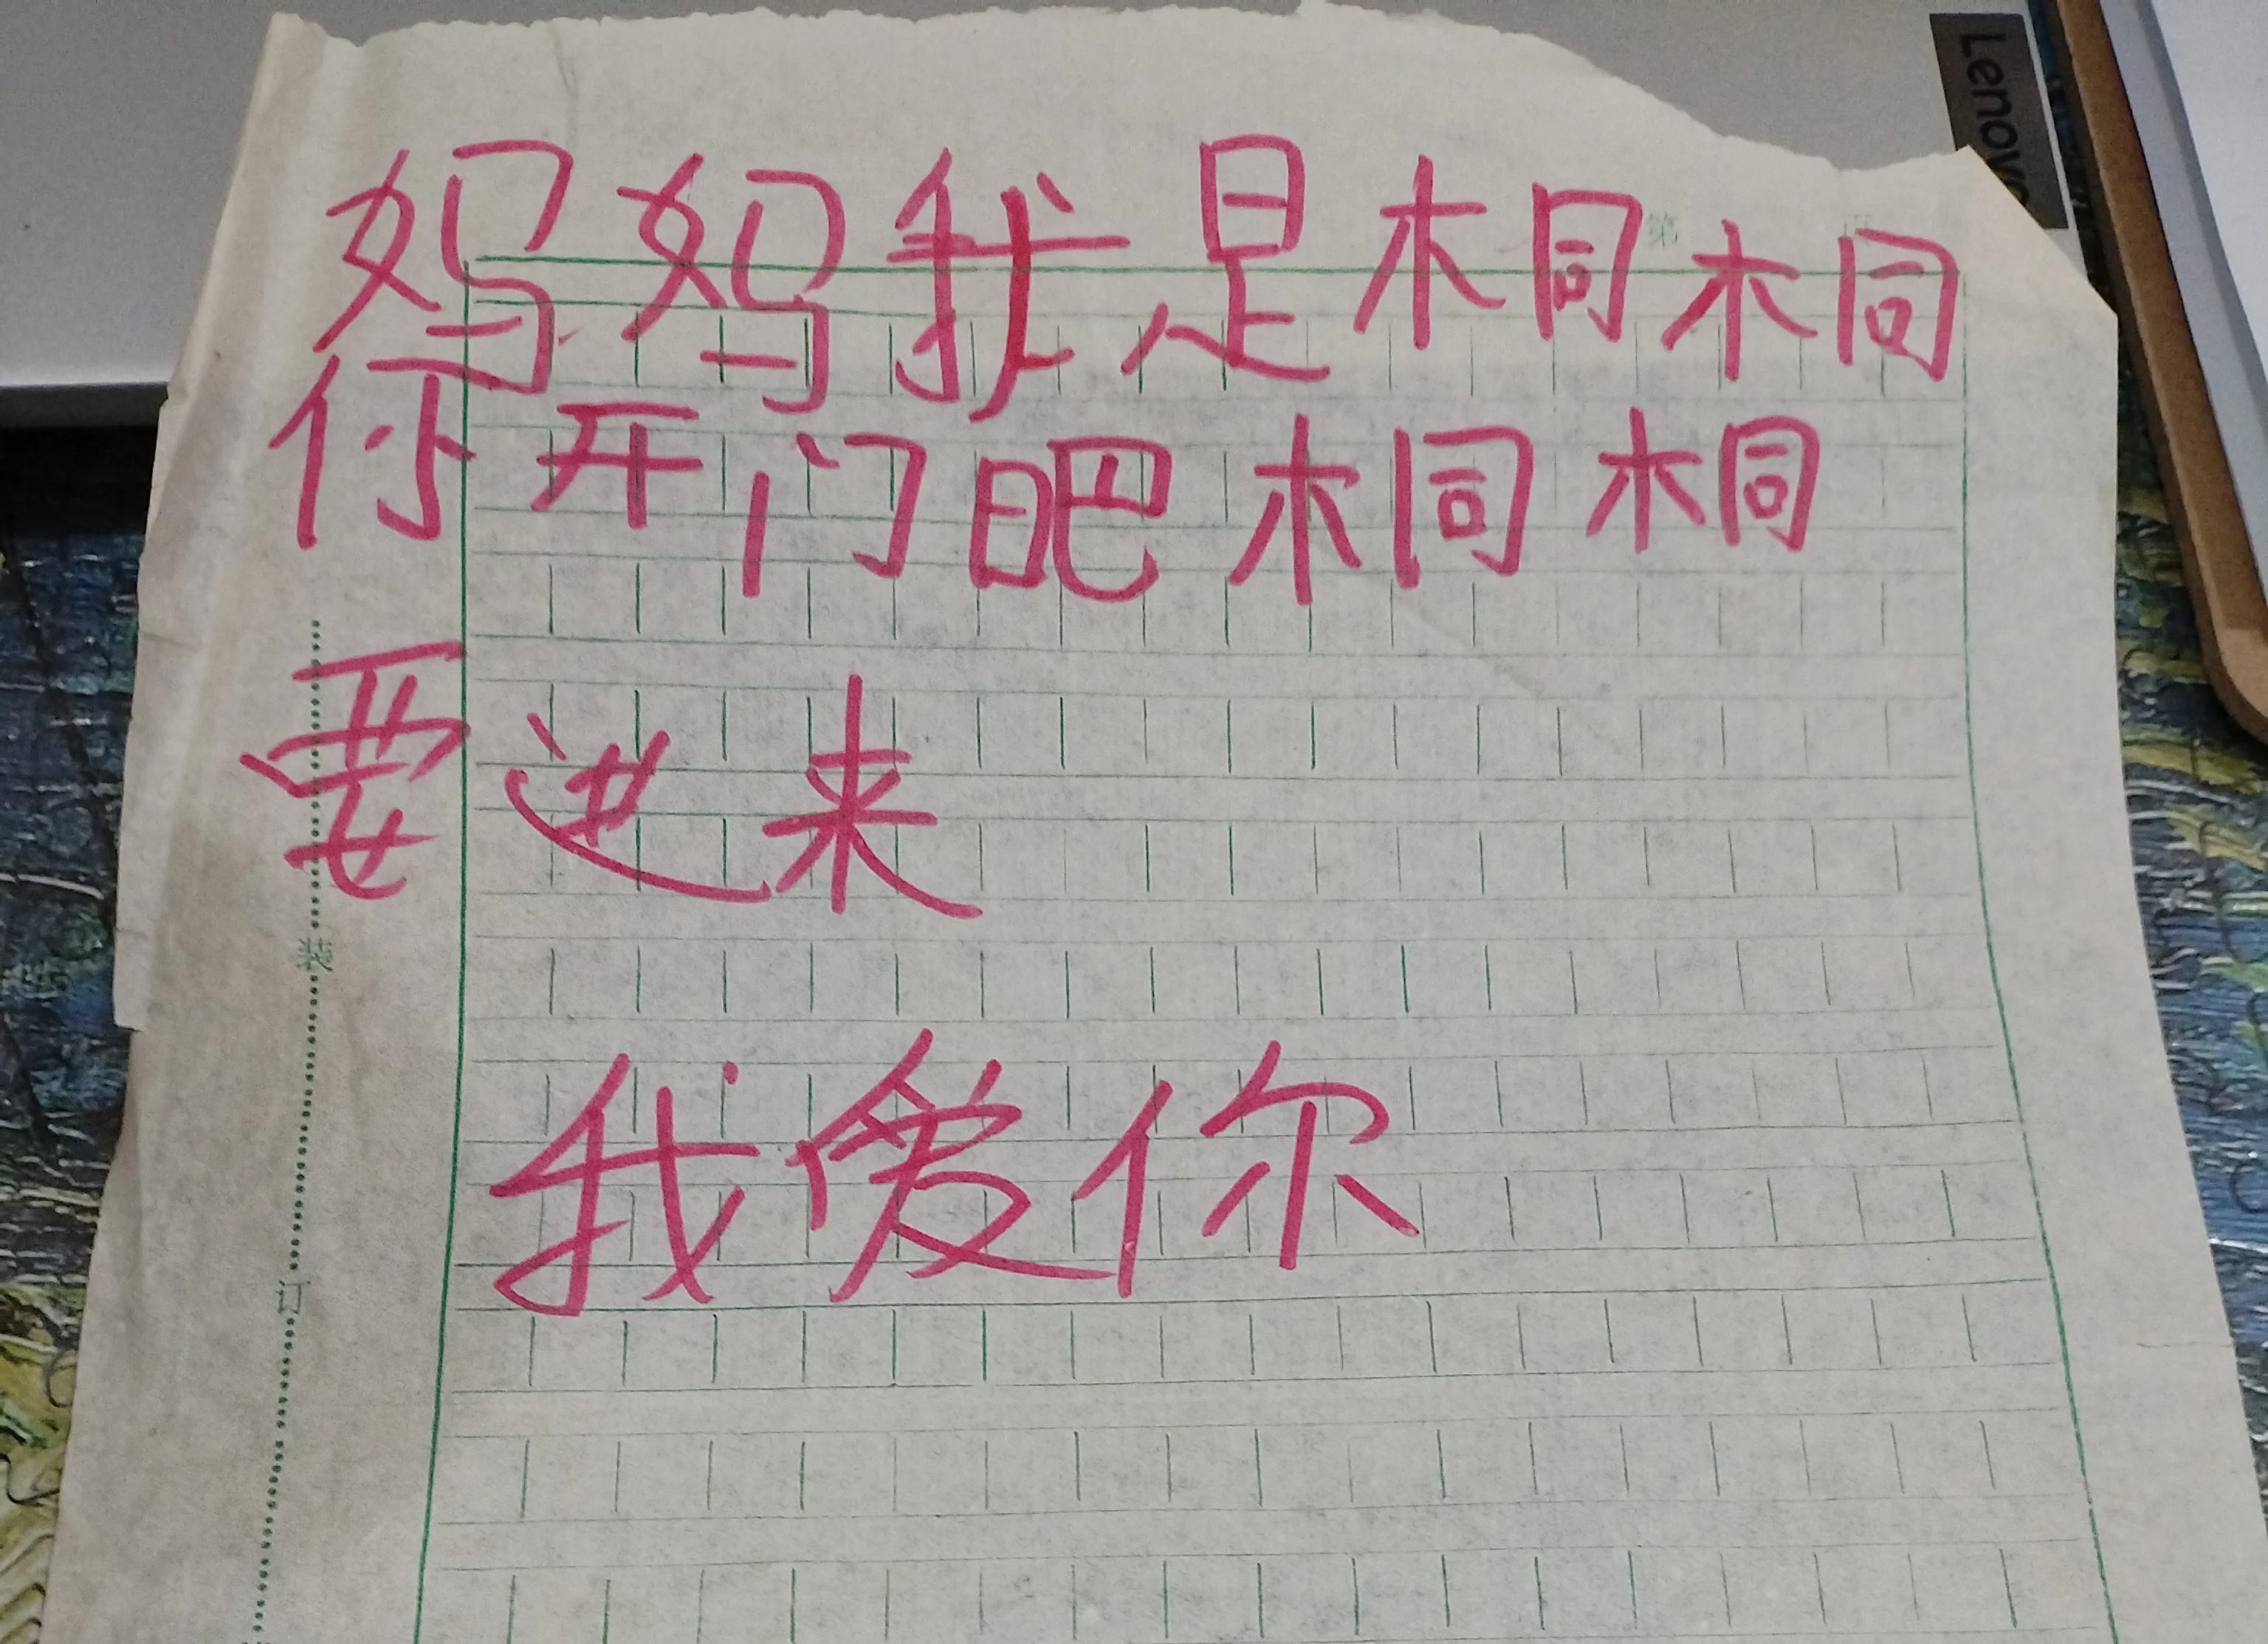 妈妈我是桐桐
你开门吧桐桐
要进来
我爱你
Lenovo
第
装
订